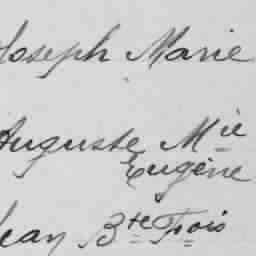 Joseph Marie
Auguste Mie
Eugène
Jean Bte Frois